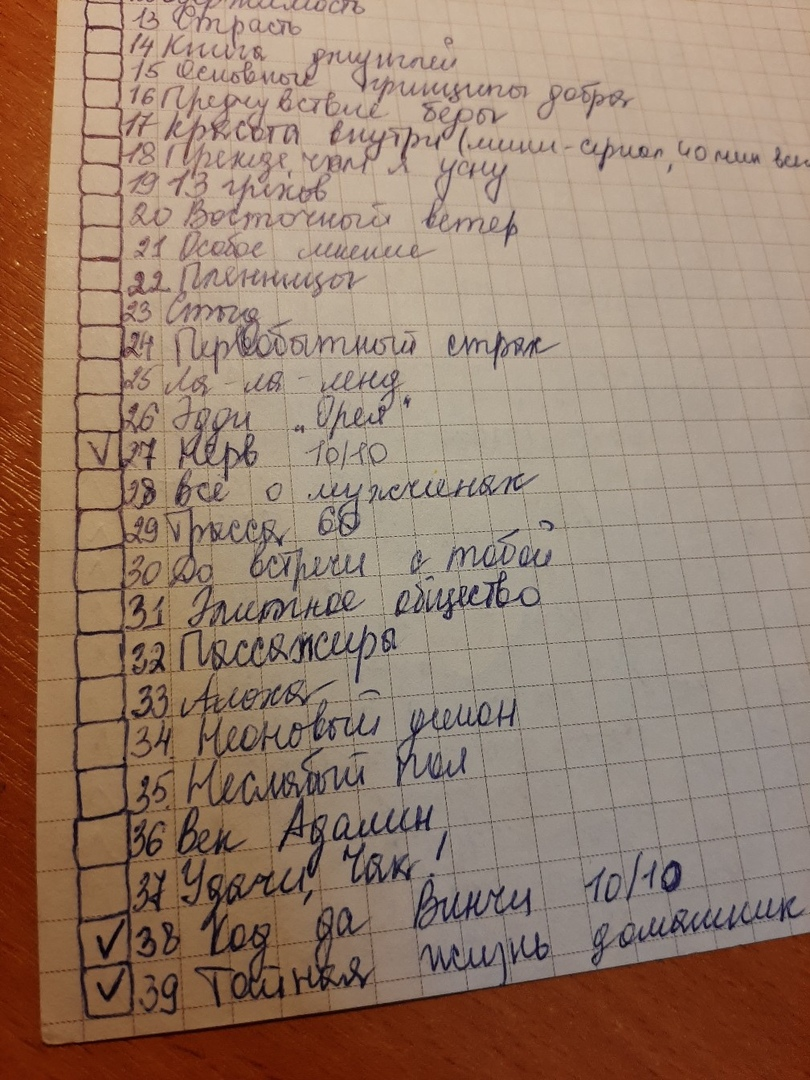 13 Страсть
14 Книга джунглей
15 Основные принципы добра
16 Предчувствие беды
17 Красота внутри (мини-сериал, 40 мин
18 Прежде, чем я усну
19 13 грехов
20 Восточный ветер
21 Особое мнение
22 Пленницы
23 Стыд
24 Первобытный страх
25 Ла-ла-ленд
26 Эдди „Орел"
27 Нерв 10/10
28 Все о мужчинах
29 Трасса 60
30 До встречи с тобой
31 Элитное общество
32 Пассажиры
33 Алоха
34 Неоновый демон
35 Неслабый пол
36 Век Адалин
37 Удачи, Чак!
38 Код да Винчи 10/10
39 Тайная жизнь домашних